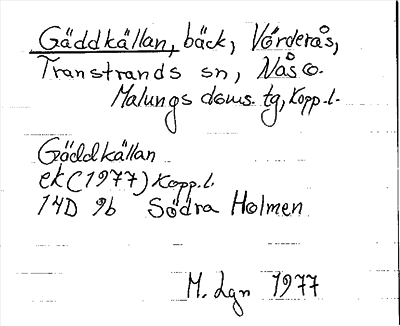 Gäddkällan, bäck, Vörderås,
Transtrands sn, Nås o.
Malungs doms. tg, Kopp.l.
Gäddkällan
ek (1977) Kopp.l.
14D 9b Södra Holmen
M. Lgn 1977